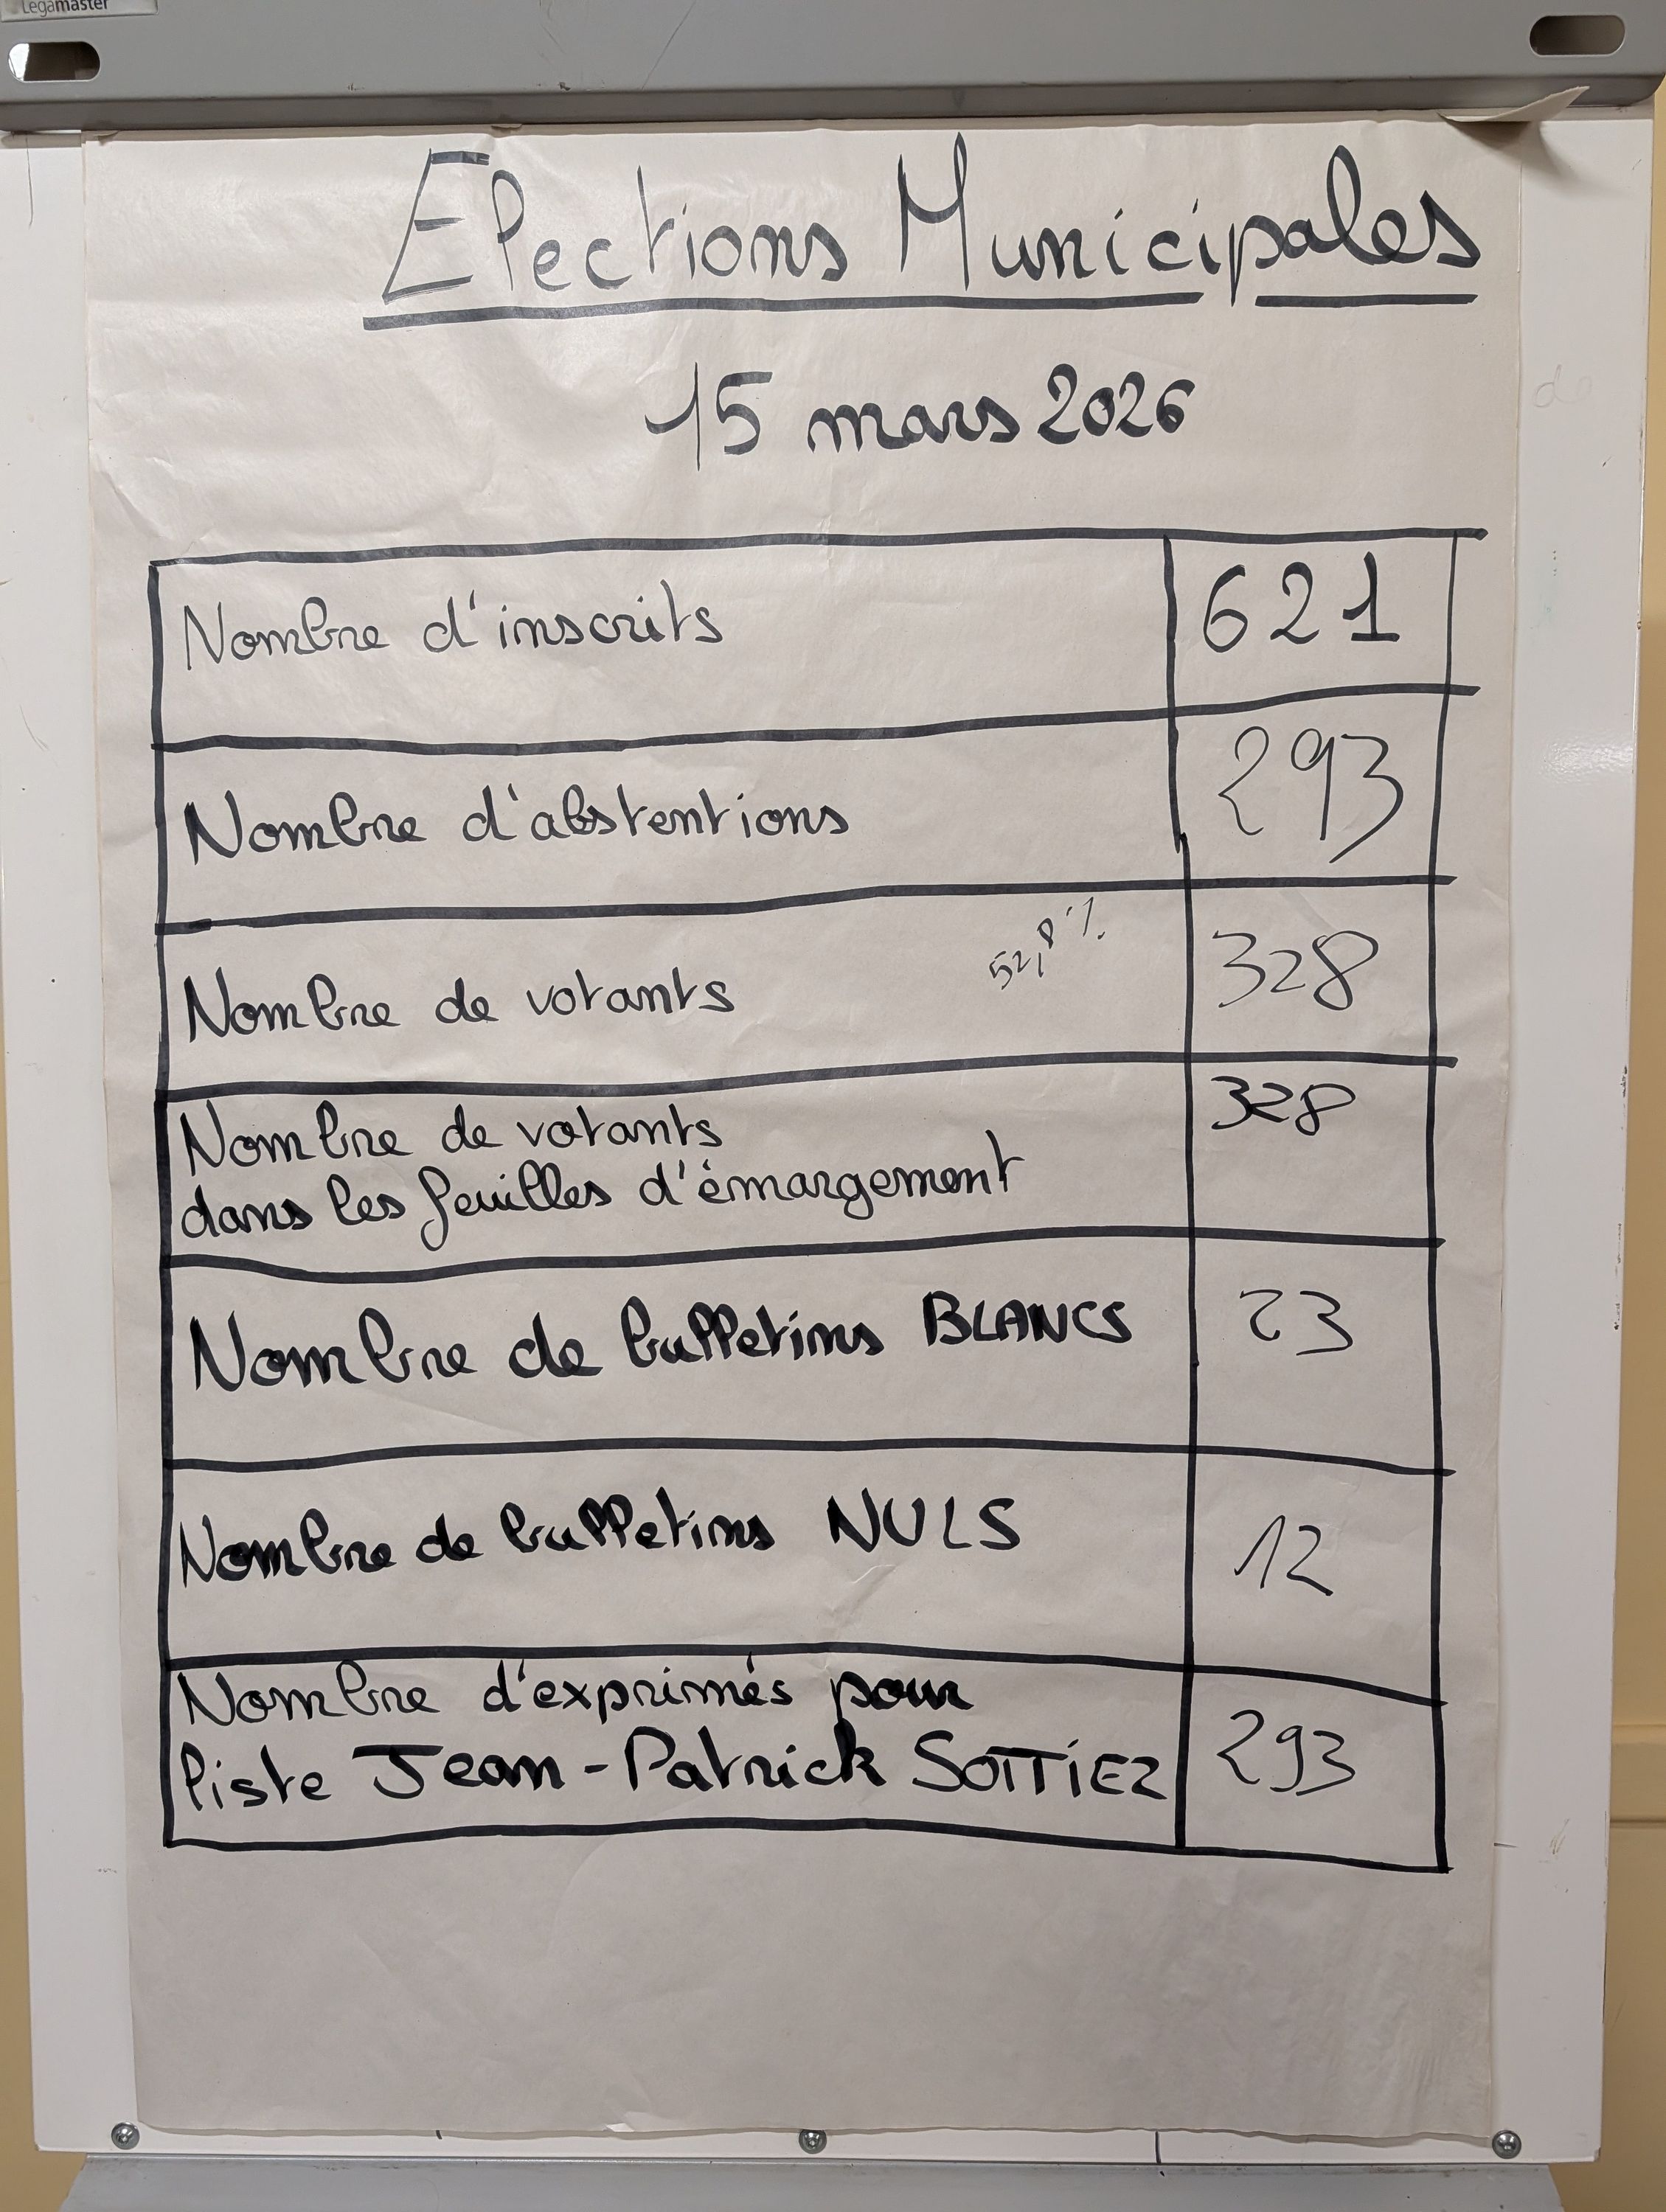 Legamaster
Elections Municipales
15 mars 2026
Nombre d'inscrits 621
Nombre d'abstentions 293
Nombre de votants 52,8 % 328
Nombre de votants 328
dans les feuilles d'émargement
Nombre de bulletins BLANCS 23
Nombre de bulletins NULS 12
Nombre d'exprimés pour
liste Jean-Patrick SOTTIEZ 293